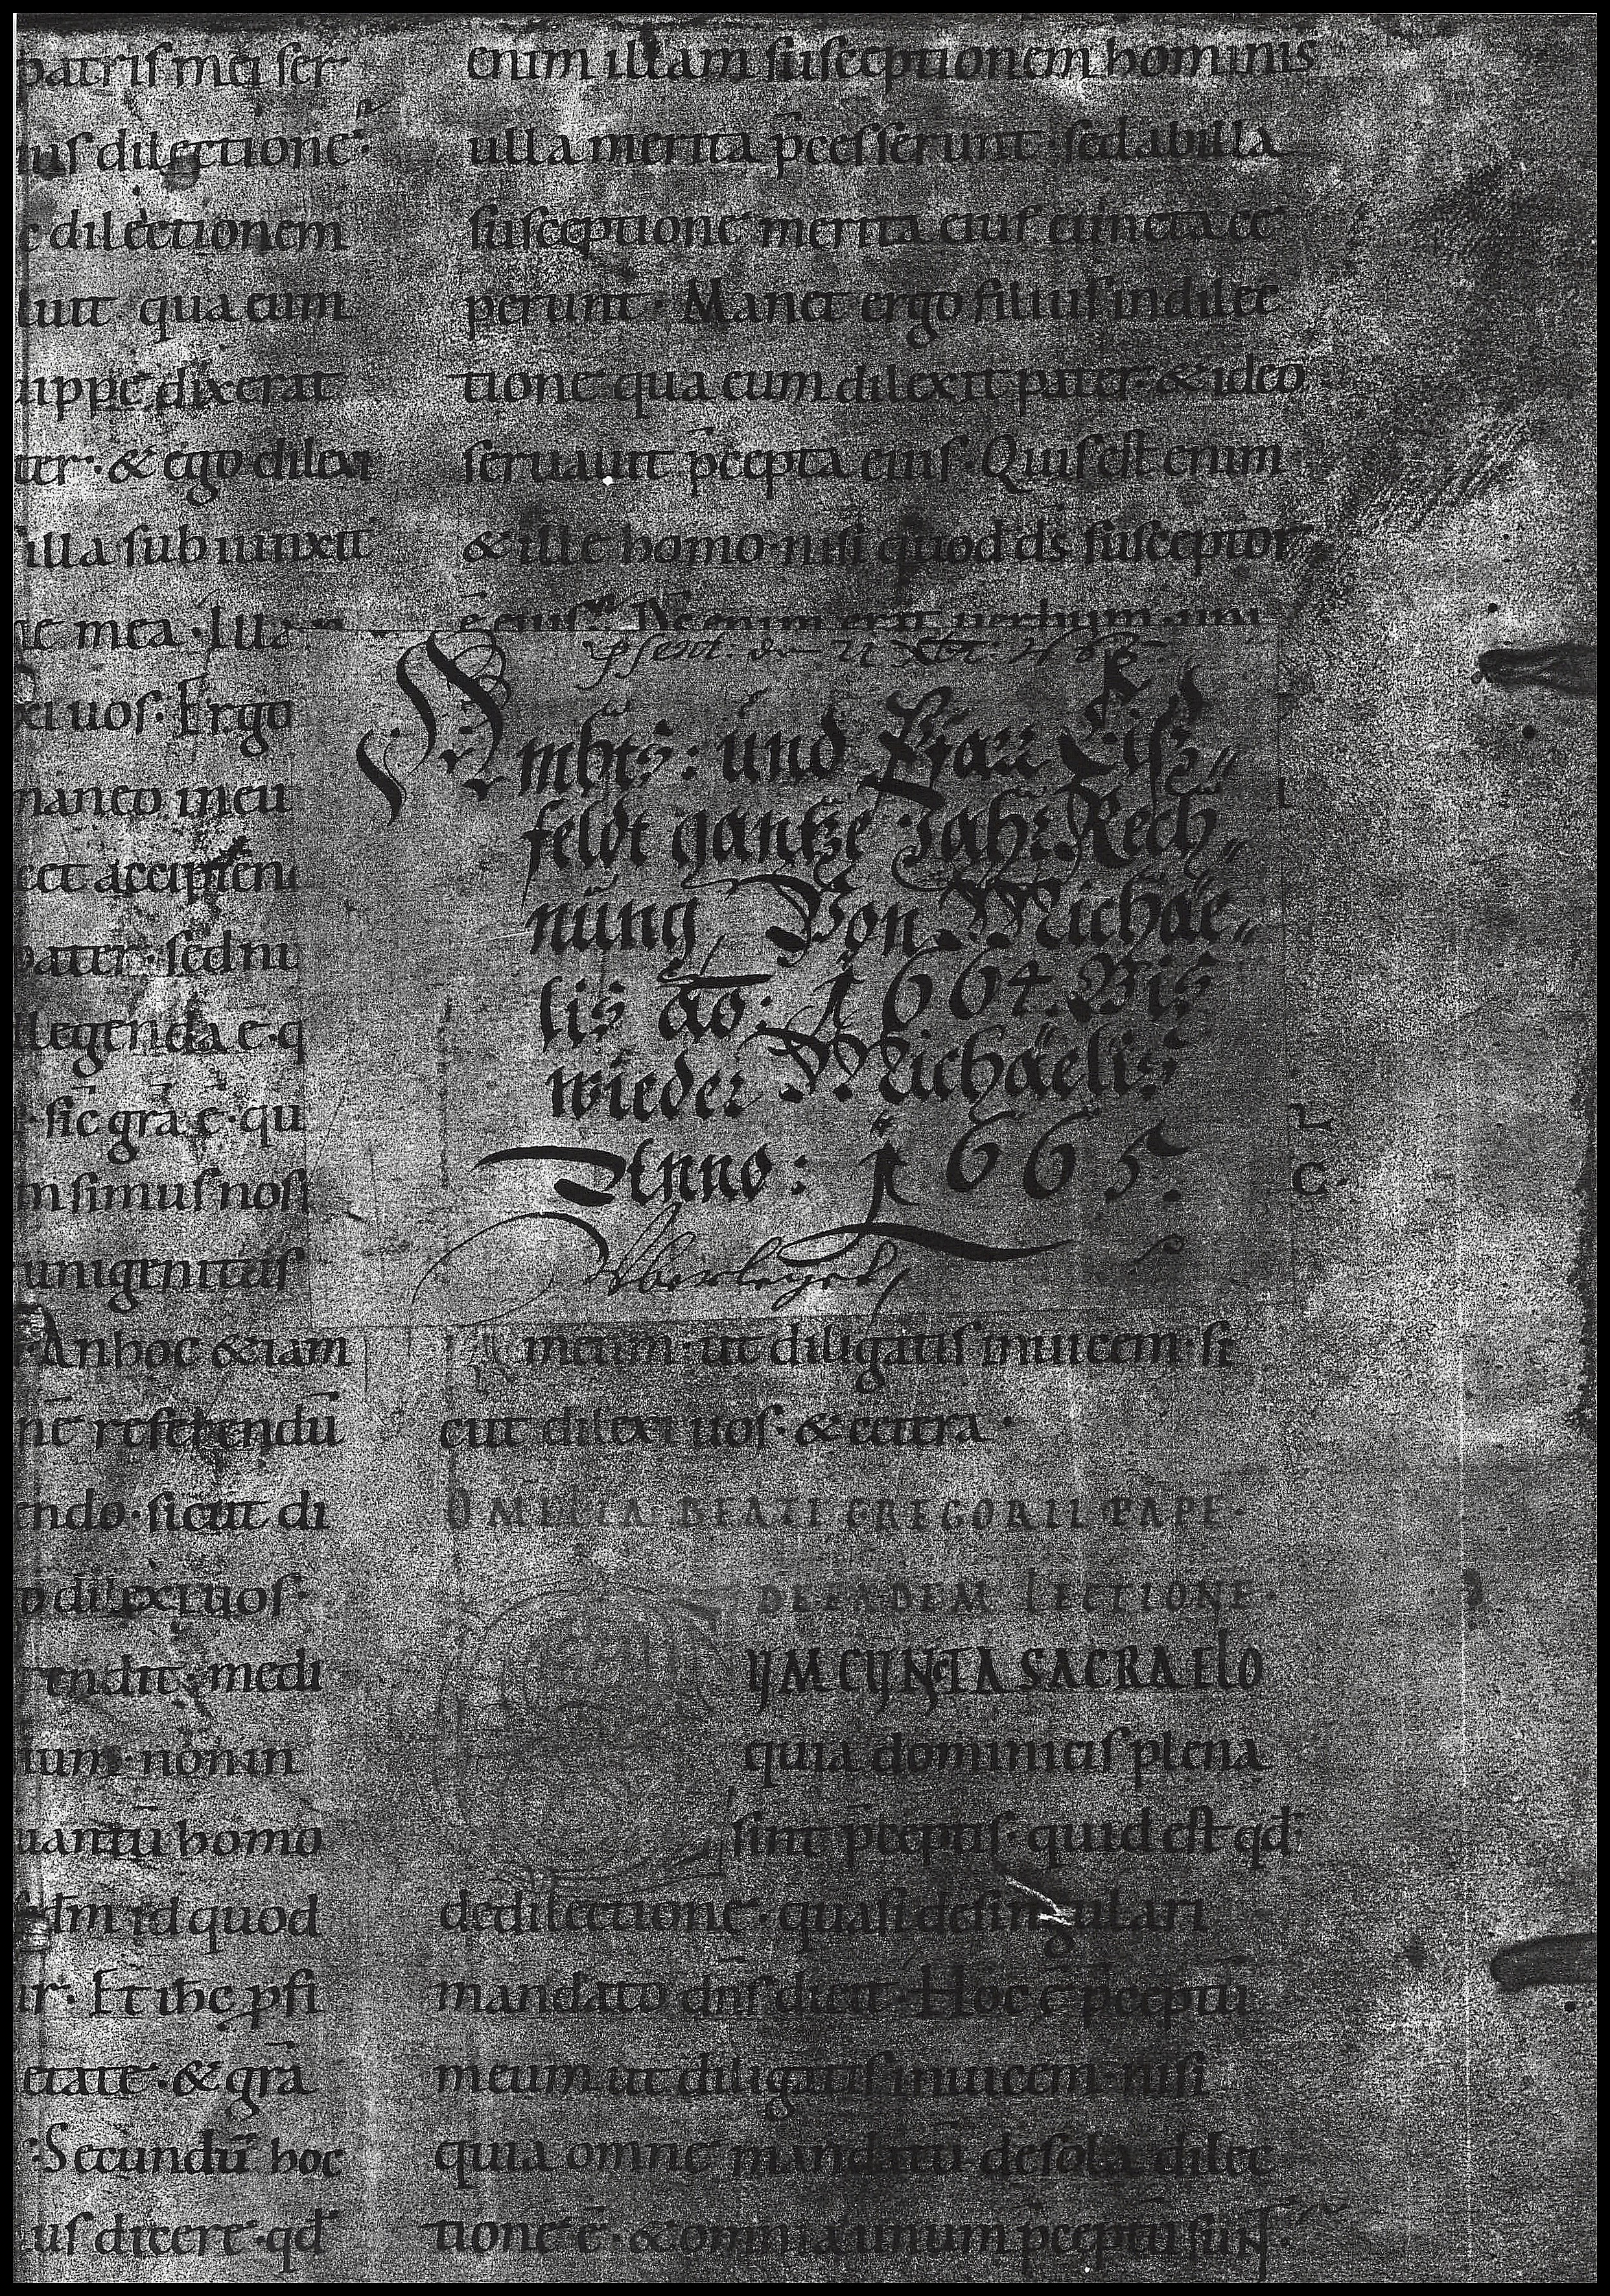 patris mei ser
ius dilectione·
e dilectionem
luit qua eum
uippe dixerat
ter· & ego dilexi
illa subiunxit
ne mea · Illa
xi uos· Ergo
maneo in eiu
ect accipien
pater· sed nu
llegenda ē· q
· sic grā ē· qu
m simus nos
unigenitus
· An hoc & iam
nc referendū
endo· sicut di
o dilexi uos·
tendit· medi
ium· non in
uantū homo
dm̄ id quod
ur· Et ihc psi
etate· & grā
· Secundū hoc
ius dicere· qd
enim illam susceptionem hominis
ulla merita p̄cesserunt· sed ab illa
susceptione merita eius cuncta cę
perunt· Manet ergo filius in dilec
tione qua eum dilexit pater· & ideo
seruauit p̄cepta eius· Quis est enim
& ille homo· nisi quod ds̄ susceptor
ē eius· Ds̄ enim erat uerbum· uni
p̄sent. den
Ambts: und Hauß Liß„
feldt gantze Jahr Rech„
nung, Von Michäe„
lis ao: 1664. Bis
wieder Michäelis
Anno: 1665.
Überleget
meum· ut diligatis inuicem· si
cut dilexi uos· & cetera·
OMELIA BEATI GREGORII PAPE·
DE EADEM LECTIONE·
UM CUNTA SACRA ELO
quia dominicis plena
sint p̄ceptis· quid est qd
de dilectione quasi de singulari
mandato dn̄s dicit· Hoc ē p̄ceptū
meum ut diligatis inuicem· nisi
quia omne mandatū de sola dilec
tione ē· & omnia unum p̄ceptū sunt·